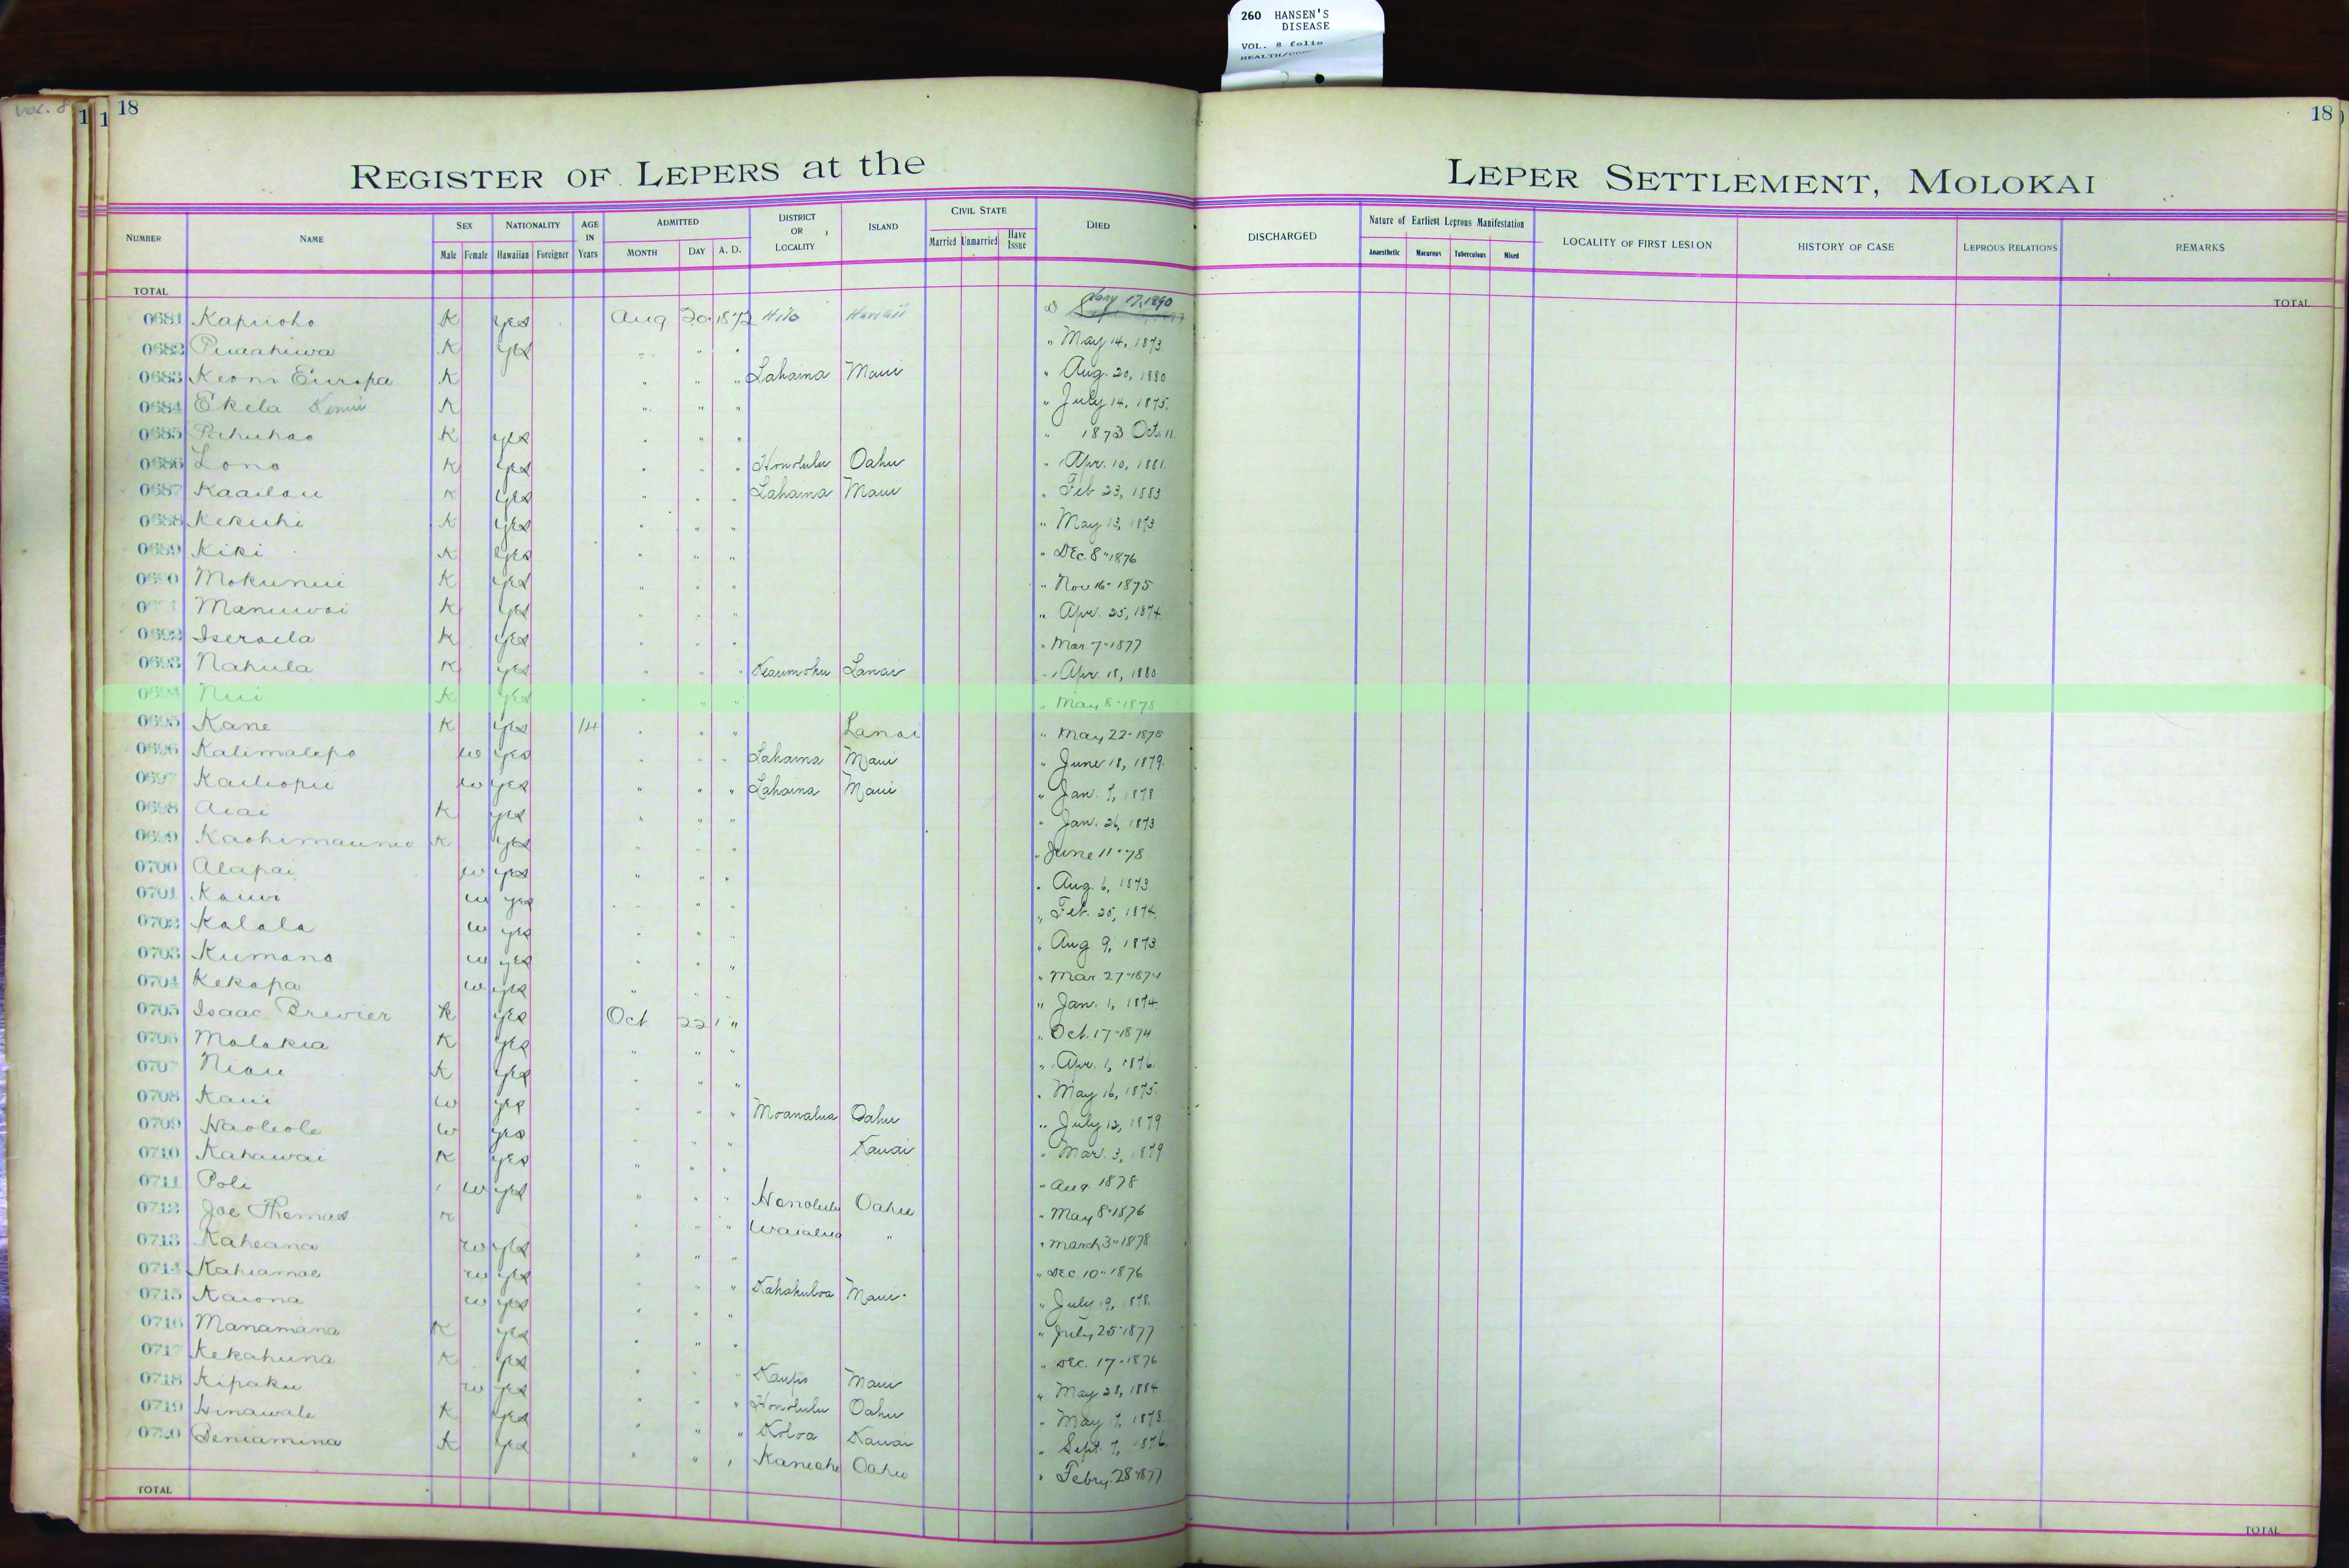 260 HANSEN'S
DISEASE
VOL. 8 folio
VOL. 8
1 1 18
18
REGISTER OF LEPERS at the
LEPER SETTLEMENT, MOLOKAI
NUMBER NAME SEX Male Female NATIONALITY Hawaiian Foreigner AGE IN Years ADMITTED MONTH DAY A. D. DISTRICT OR LOCALITY ISLAND CIVIL STATE Married Unmarried Have Issue DIED DISCHARGED Nature of Earliest Leprous Manifestation Anaesthetic Macurous Tuberculous Mixed LOCALITY OF FIRST LESION HISTORY OF CASE LEPROUS RELATIONS REMARKS
TOTAL TOTAL
0681 Kapuoho K yes Aug 20 1872 Hilo Hawaii Jany 17, 1890
0682 Puaahiwa K yes " " " " May 14, 1873
0683 Keoni Europa K " " " Lahaina Maui " Aug. 20, 1880
0684 Ekela K " " " " July 14, 1875.
0685 Pahuhao K yes " " " " 1873 Oct. 11.
0686 Lono K yes " " " Honolulu Oahu " Apr. 10, 1881.
0687 Kaailau K yes " " " Lahaina Maui " Feb 23, 1883
0688 Kekuhi K yes " " " " May 13, 1873
0689 Kiki K yes " " " " Dec. 8" 1876
0690 Mokunui K yes " " " " Nov 16- 1875
Manuwai K yes " " " " Apr. 25, 1874.
0692 Iseraela K yes " " " " Mar. 7" 1877
0693 Nahula K yes " " " Keaumoku Lanai " Apr. 18, 1880
0694 Nui K yes " " " " May 8" 1875
0695 Kane K yes 14 " " " Lanai " May 22- 1875
0696 Kalimalepo w yes " " " Lahaina Maui " June 18, 1879.
0697 Kailiopu w yes " " " Lahaina Maui " Jan. 7, 1878
0698 Aiai K yes " " " " Jan. 26, 1873
0699 K yes " " " " June 11" 78
0700 Alapai w yes " " " " Aug. 6, 1873
0701 Kauwi w yes " " " " Feb. 25, 1874.
0702 Kalala w yes " " " " Aug 9, 1873.
0703 Kumano w yes " " " " Mar. 27" 1874
0704 Kekapa w yes " " " " Jan. 1, 1874.
0705 Isaac Brewier K yes Oct 22 " " Oct. 17" 1874
0706 Molokia K yes " " " " Apr. 1, 1876.
0707 Niau K yes " " " " May 16, 1875.
0708 Kaui w yes " " " Moanalua Oahu " July 12, 1879
0709 Haoleole w yes " " " Kauai " Mar. 3, 1879
0710 Kahawai K yes " " " " Aug 1878
0711 Poli w yes " " " Honolulu Oahu " May 8" 1876
0712 Joe Thomas K " " " Waialua " " March 3" 1878
0713 Kaheana w yes " " " " Dec. 10" 1876
0714 Kahiamoe w yes " " " Kahakuloa Maui " July 19, 1878.
0715 Kaiona w yes " " " " July 25" 1877
0716 Manamana K yes " " " " Dec. 17- 1876
0717 Kekahuna K yes " " " Kaupo Maui " May 28, 1884
0718 Kipaku w yes " " " Honolulu Oahu " May 17, 1878.
0719 Hinawale K yes " " " Koloa Kauai " Sept. 7, 1876.
0720 Beniamina K yes " " " Kaneohe Oahu " Febry. 28" 1877
TOTAL TOTAL